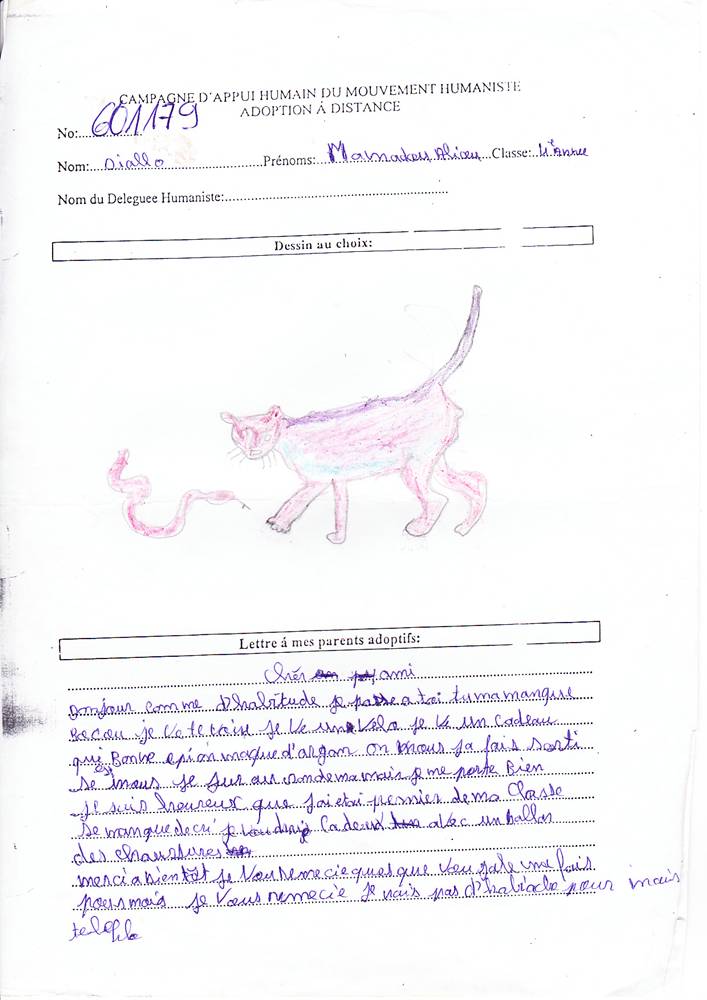 CAMPAGNE D'APPUI HUMAIN DU MOUVEMENT HUMANISTE
ADOPTION Á DISTANCE
No:....601179
Nom:....Diallo....Prénoms:....Mamadou Aliou....Classe: 4e Année
Nom du Deleguee Humaniste:....
Dessin au choix:
Lettre á mes parents adoptifs:
Chér ami
Bonjour comme d'habitude je passe a toi tu ma mangue
Becou je je ve un velo je ve un cadeau
qui Bonne d'argan on nous ja fais sorti
nous je sur mais je me porte Bien
je suis houreux que jai etai permier de ma Classe
Se mangue de je voudrai Cadeux avec un ballon
des chaussures
merci a bientôt je Vous remecie ques que Vou fais
pour je vous remecie je pas d'habitude pour